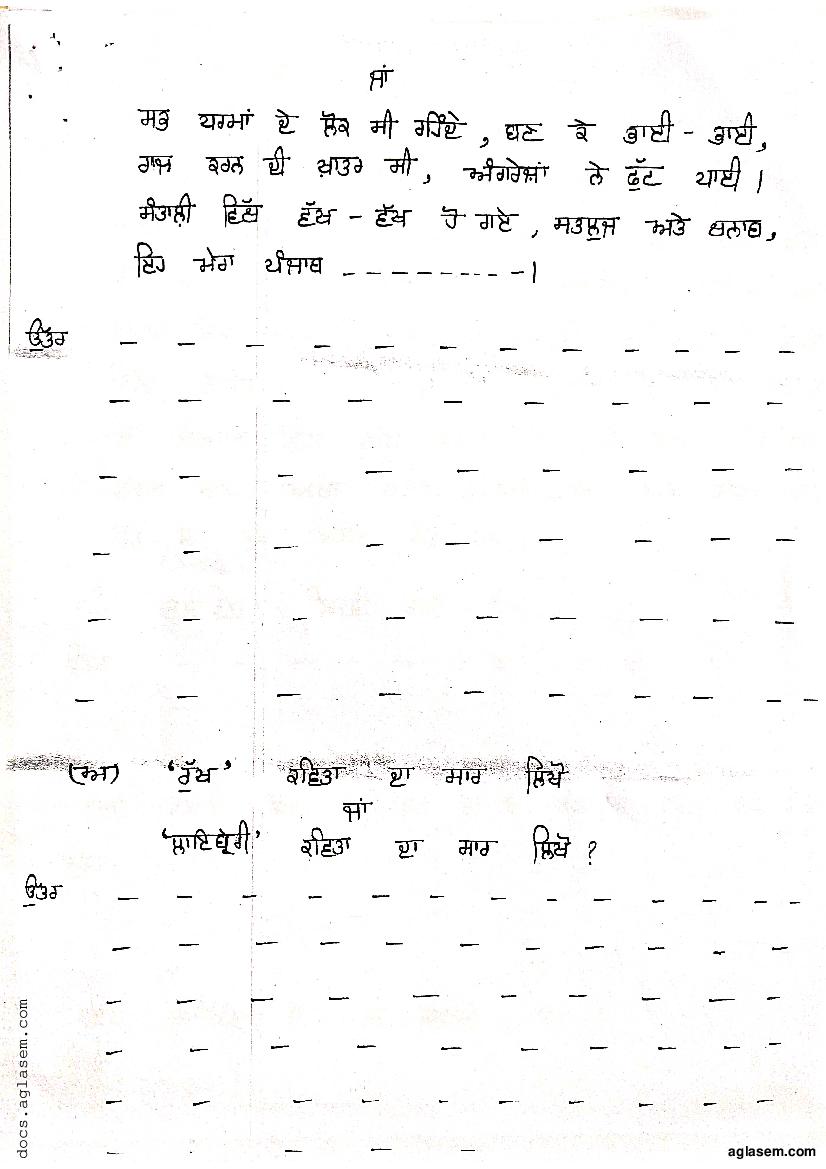 ਜਾਂ
ਸਭ ਧਰਮਾਂ ਦੇ ਲੋਕ ਸੀ ਰਹਿੰਦੇ, ਬਣ ਕੇ ਭਾਈ - ਭਾਈ,
ਰਾਜ ਕਰਨ ਦੀ ਖ਼ਾਤਰ ਸੀ, ਅੰਗਰੇਜ਼ਾਂ ਨੇ ਫੁੱਟ ਪਾਈ।
ਸੰਤਾਲੀ ਵਿੱਚ ਵੱਖ - ਵੱਖ ਹੋ ਗਏ, ਸਤਲੁਜ ਅਤੇ ਚਨਾਬ,
ਇਹ ਮੇਰਾ ਪੰਜਾਬ - - - - - - - - -।
ਉੱਤਰ
(ਅ) 'ਰੁੱਖ' ਕਵਿਤਾ ਦਾ ਸਾਰ ਲਿਖੋ
ਜਾਂ
'ਲਾਇਬ੍ਰੇਰੀ' ਕਵਿਤਾ ਦਾ ਸਾਰ ਲਿਖੋ?
ਉੱਤਰ
docs.aglasem.com
aglasem.com